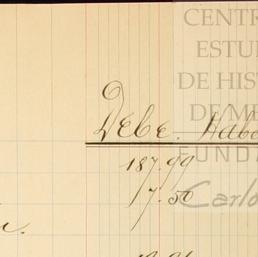 CENTR
ESTU
DE HIS
DE ME
Debe. Habe
FUNDA
187.99
7.50
Carlo